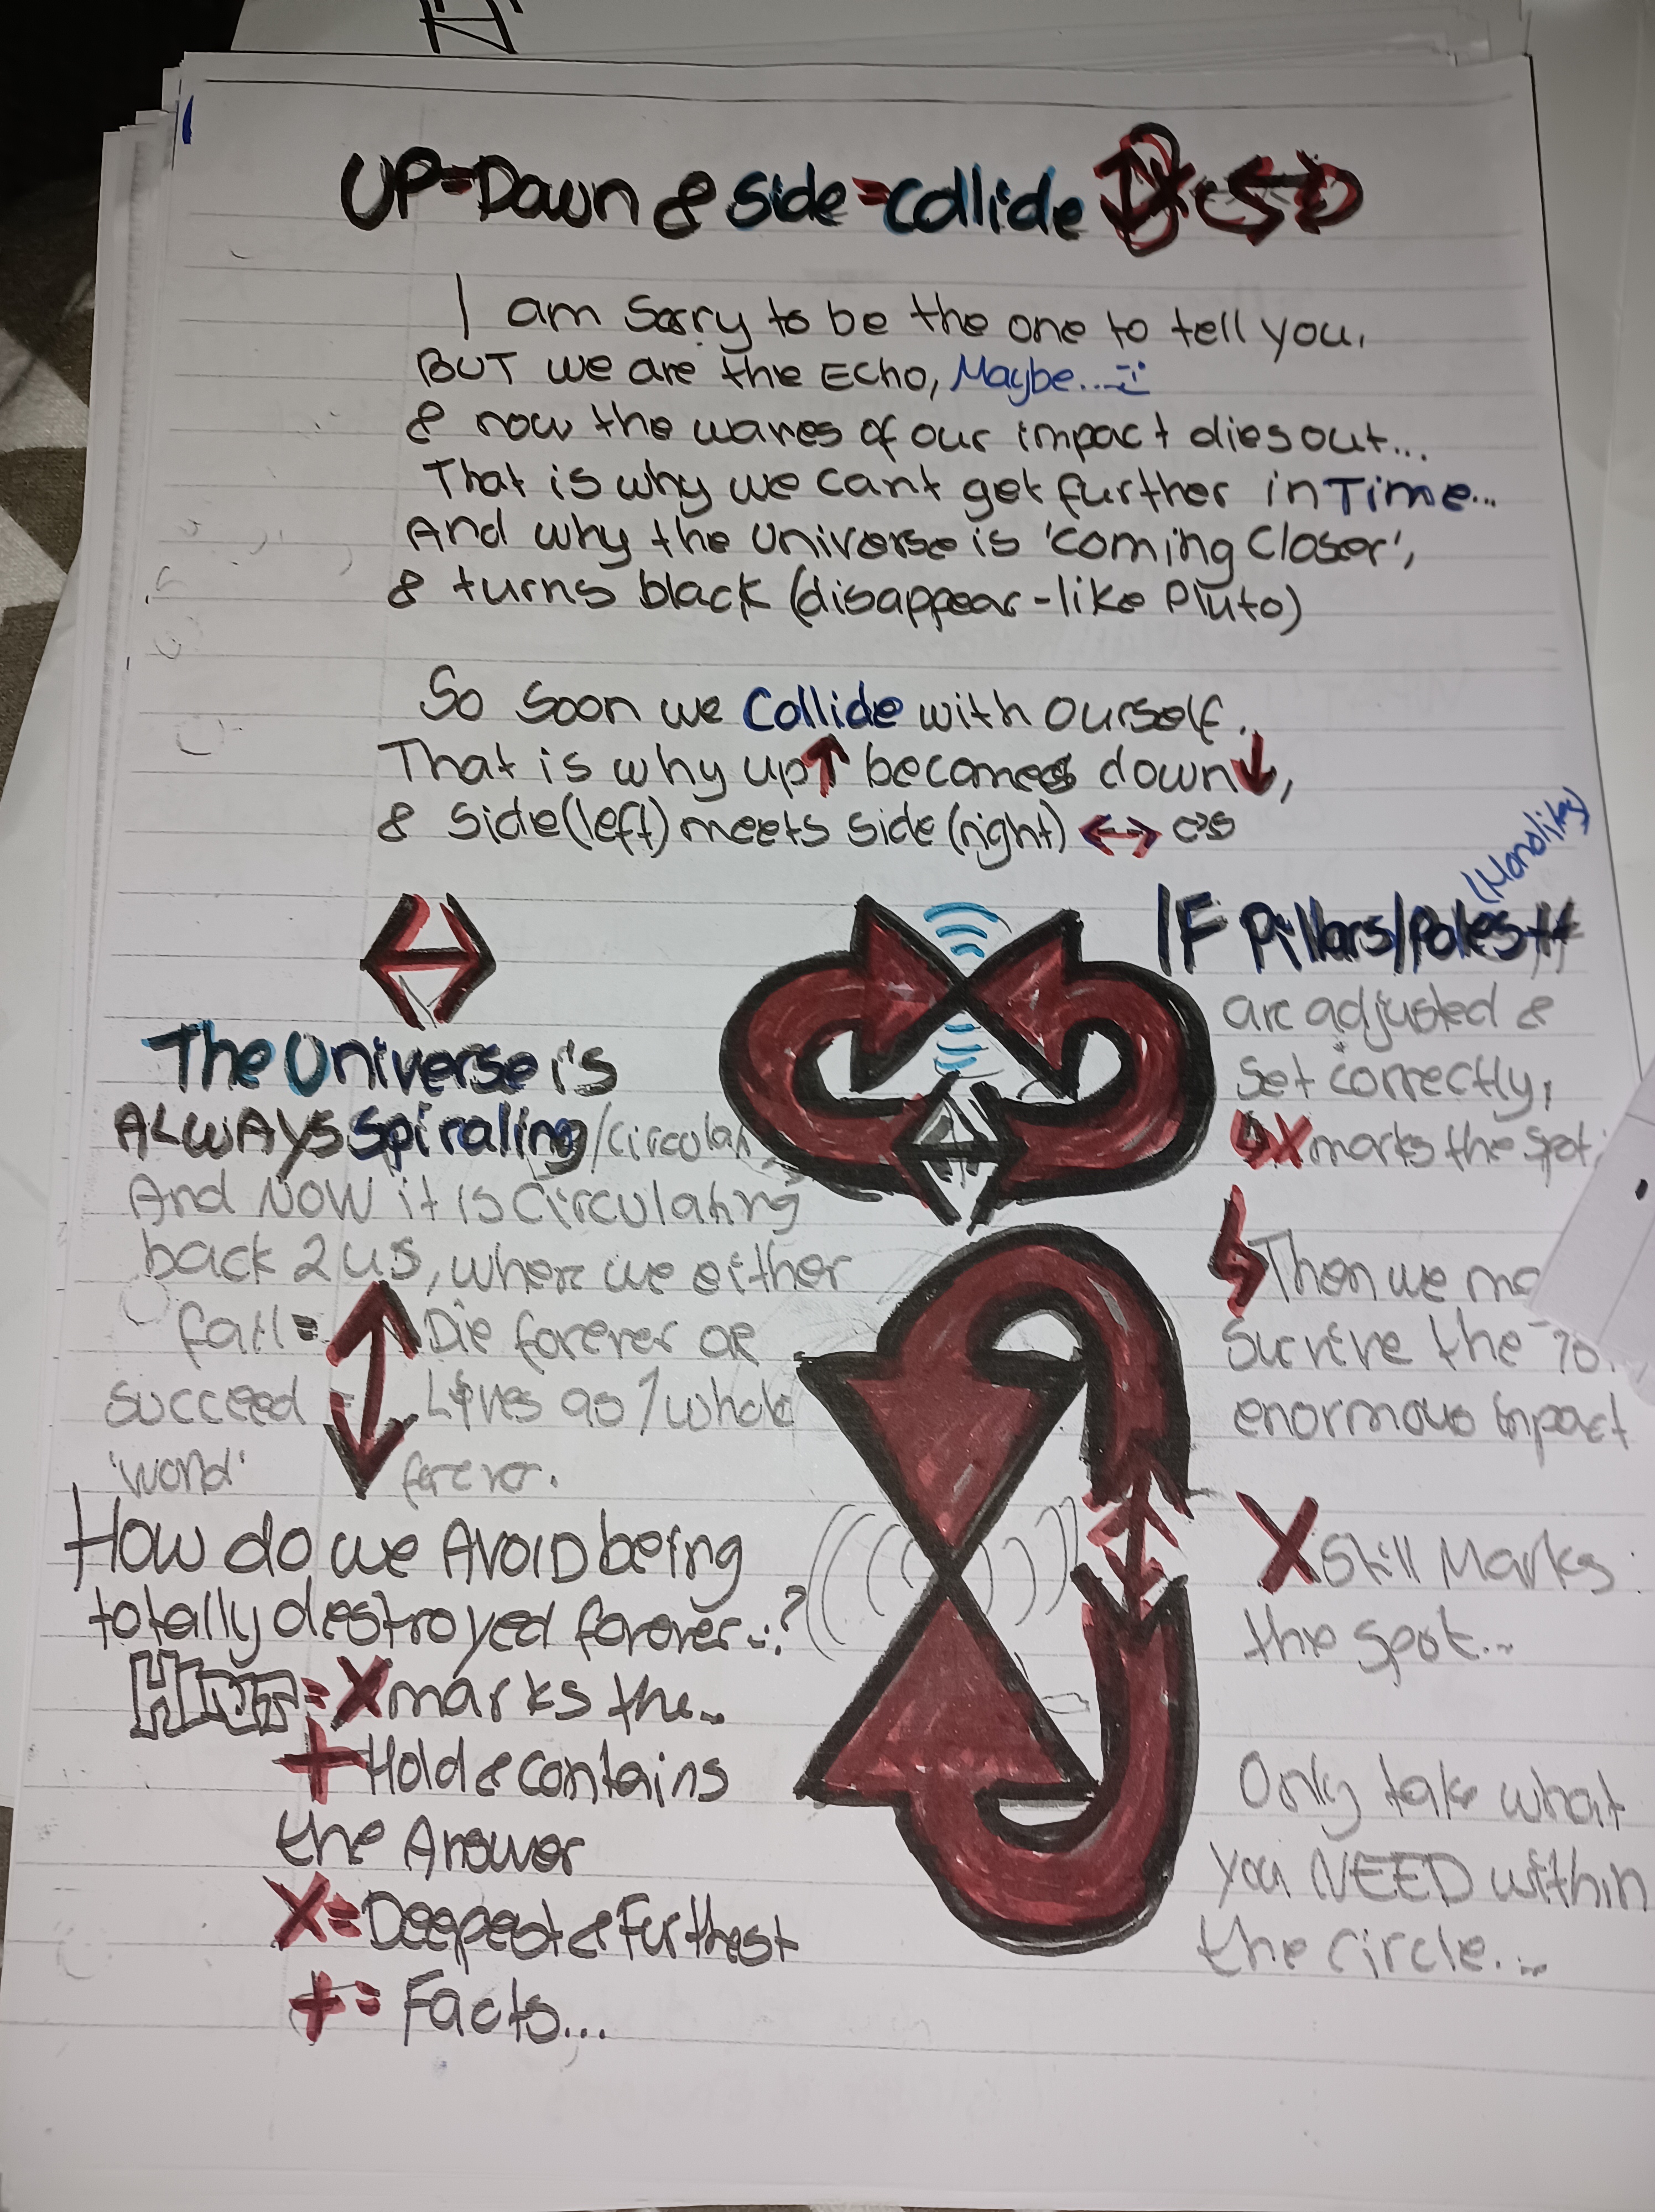 UP=Down & side=collide
I am Sorry to be the one to tell you,
BUT we are the Echo, Maybe...
& now the waves of our impact dies out...
That is why we cant get further in Time...
And why the Universe is 'coming closer',
& turns black (disappear-like Pluto)
So Soon we Collide with ourself.
That is why up↑ becomes down↓,
& side(left) meets side(right) ↔
The Universe is
ALWAYS Spiraling/circular
And NOW it is Circulating
back 2 us, where we either
fail= Die forever or
succeed = Lives as 1 whole
'world' forever.
How do we AVOID being
totally destroyed forever...?
X marks the...
+ Hold & contains
the Answer
X= Deepest & Furthest
+= Facts...
(Monoliths)
IF Pillars/Poles
are adjusted &
Set correctly,
X marks the spot
Then we
Survive the
enormous impact
X Still Marks
the spot...
Only take what
you NEED within
the circle...